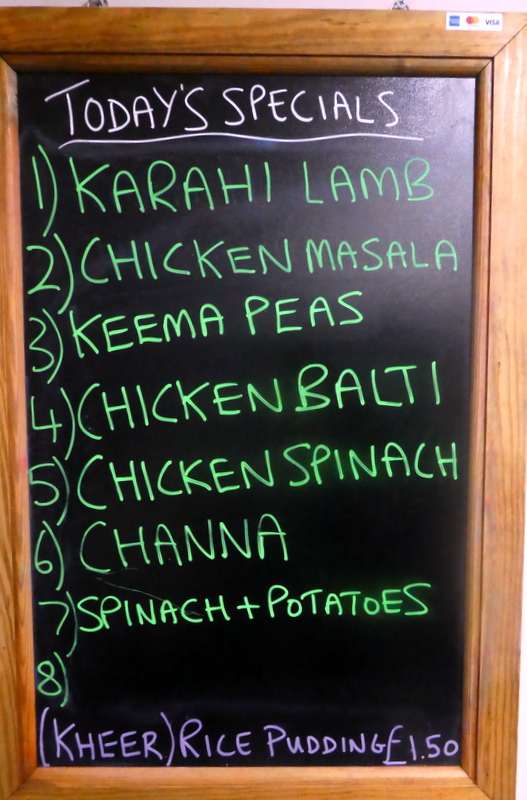 VISA
TODAY'S SPECIALS
1) KARAHI LAMB
2) CHICKEN MASALA
3) KEEMA PEAS
4) CHICKEN BALTI
5) CHICKEN SPINACH
6) CHANNA
7) SPINACH + POTATOES
8)
(KHEER) RICE PUDDING £1.50